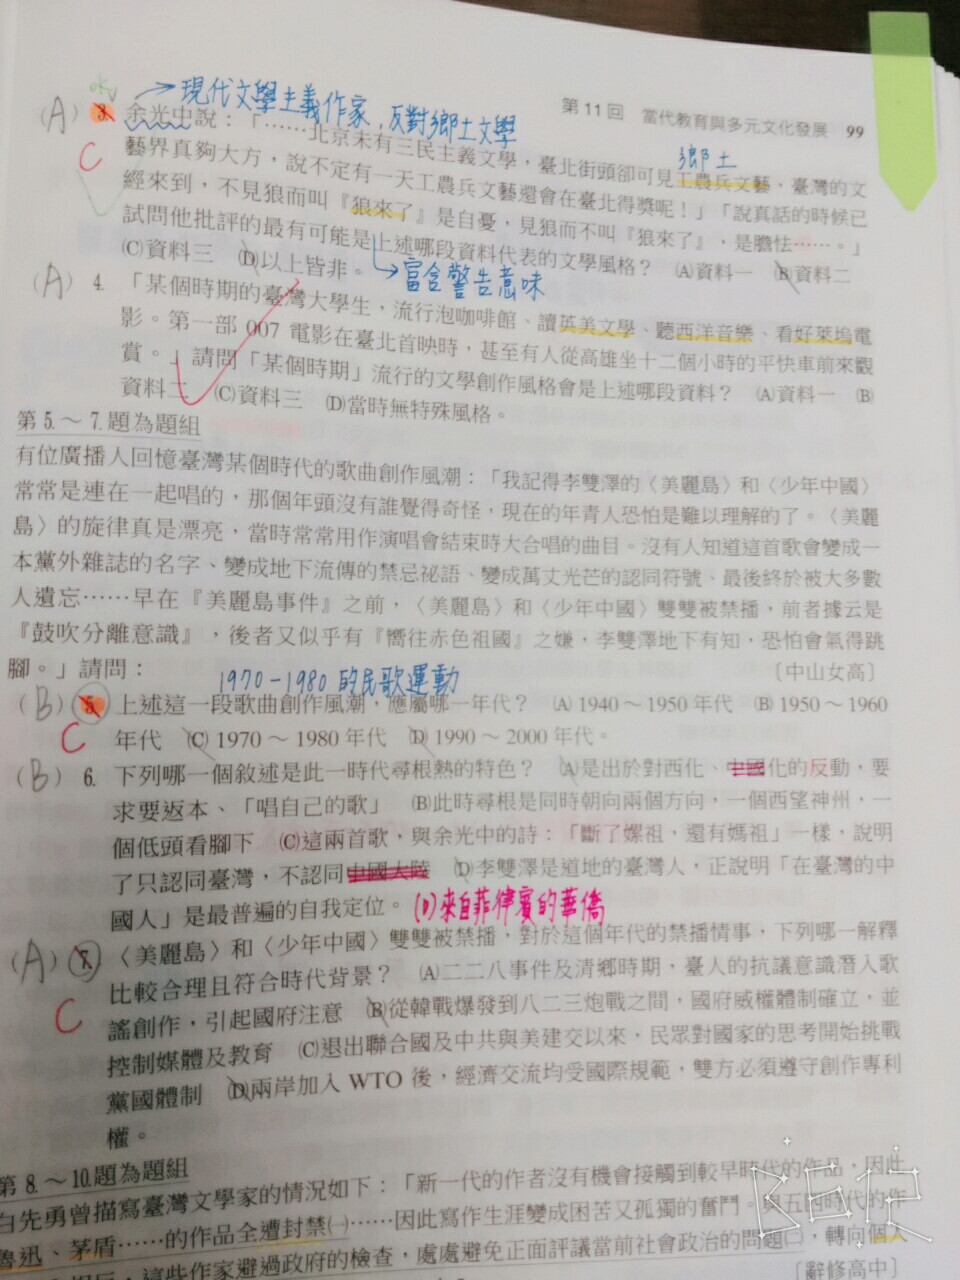 第 11 回　當代教育與多元文化發展　99
ok
→現代文學主義作家,反對鄉土文學
(A) 3. 余光中說：「……北京未有三民主義文學，臺北街頭卻可見工農兵文藝，臺灣的文
鄉土
C
藝界真夠大方，說不定有一天工農兵文藝還會在臺北得獎呢！」「說真話的時候已
經來到，不見狼而叫『狼來了』是自憂，見狼而不叫『狼來了』，是膽怯……。」
試問他批評的最有可能是上述哪段資料代表的文學風格？　(A)資料一　(B)資料二
(C)資料三　(D)以上皆非。
→富含警告意味
(A) 4. 「某個時期的臺灣大學生，流行泡咖啡館、讀英美文學、聽西洋音樂、看好萊塢電
影。第一部 007 電影在臺北首映時，甚至有人從高雄坐十二個小時的平快車前來觀
賞。」請問「某個時期」流行的文學創作風格會是上述哪段資料？　(A)資料一　(B)
資料二　(C)資料三　(D)當時無特殊風格。
第 5.～ 7.題為題組
有位廣播人回憶臺灣某個時代的歌曲創作風潮：「我記得李雙澤的〈美麗島〉和〈少年中國〉
常常是連在一起唱的，那個年頭沒有誰覺得奇怪，現在的年青人恐怕是難以理解的了。〈美麗
島〉的旋律真是漂亮，當時常常用作演唱會結束時大合唱的曲目。沒有人知道這首歌會變成一
本黨外雜誌的名字、變成地下流傳的禁忌祕語、變成萬丈光芒的認同符號、最後終於被大多數
人遺忘……早在『美麗島事件』之前，〈美麗島〉和〈少年中國〉雙雙被禁播，前者據云是
『鼓吹分離意識』，後者又似乎有『嚮往赤色祖國』之嫌，李雙澤地下有知，恐怕會氣得跳
腳。」請問：　〔中山女高〕
1970-1980 的民歌運動
(B) 5. 上述這一段歌曲創作風潮，應屬哪一年代？　(A) 1940～1950 年代　(B) 1950～1960
C
年代　(C) 1970～1980 年代　(D) 1990～2000 年代。
(B) 6. 下列哪一個敘述是此一時代尋根熱的特色？　(A)是出於對西化、中國化的反動，要
求要返本、「唱自己的歌」　(B)此時尋根是同時朝向兩個方向，一個西望神州，一
個低頭看腳下　(C)這兩首歌，與余光中的詩：「斷了嫘祖，還有媽祖」一樣，說明
了只認同臺灣，不認同中國大陸　(D)李雙澤是道地的臺灣人，正說明「在臺灣的中
國人」是最普遍的自我定位。
(D)來自菲律賓的華僑
(A) 7. 〈美麗島〉和〈少年中國〉雙雙被禁播，對於這個年代的禁播情事，下列哪一解釋
C
比較合理且符合時代背景？　(A)二二八事件及清鄉時期，臺人的抗議意識潛入歌
謠創作，引起國府注意　(B)從韓戰爆發到八二三炮戰之間，國府威權體制確立，並
控制媒體及教育　(C)退出聯合國及中共與美建交以來，民眾對國家的思考開始挑戰
黨國體制　(D)兩岸加入 WTO 後，經濟交流均受國際規範，雙方必須遵守創作專利
權。
第 8.～ 10.題為題組
白先勇曾描寫臺灣文學家的情況如下：「新一代的作者沒有機會接觸到較早時代的作品，因此
魯迅、茅盾……的作品全遭封禁㈠……因此寫作生涯變成困苦又孤獨的奮鬥。與五四時代的作
這些作家避過政府的檢查，處處避免正面評議當前社會政治的問題㈡，轉向個人
〔辭修高中〕